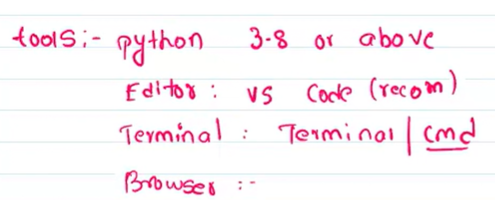 tools:- python 3-8 or above
Editor: VS Code (recom)
Terminal: Terminal | cmd
Browser :-